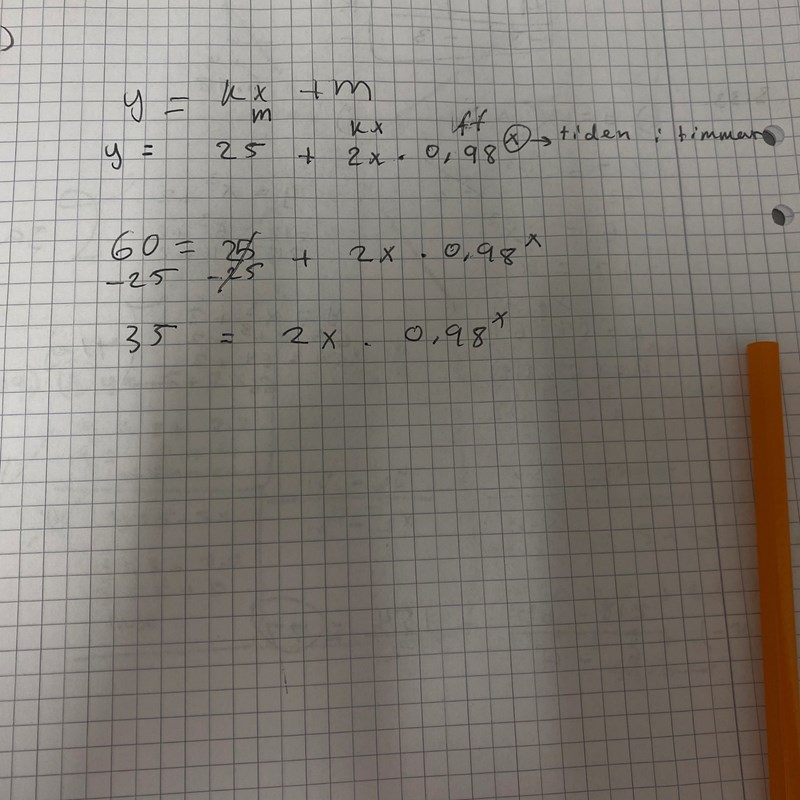 )
y = kx + m
m kx ff
y = 25 + 2x · 0,98^x → tiden i timmar
60 = 25 + 2x · 0,98^x
-25 -25
35 = 2x · 0,98^x